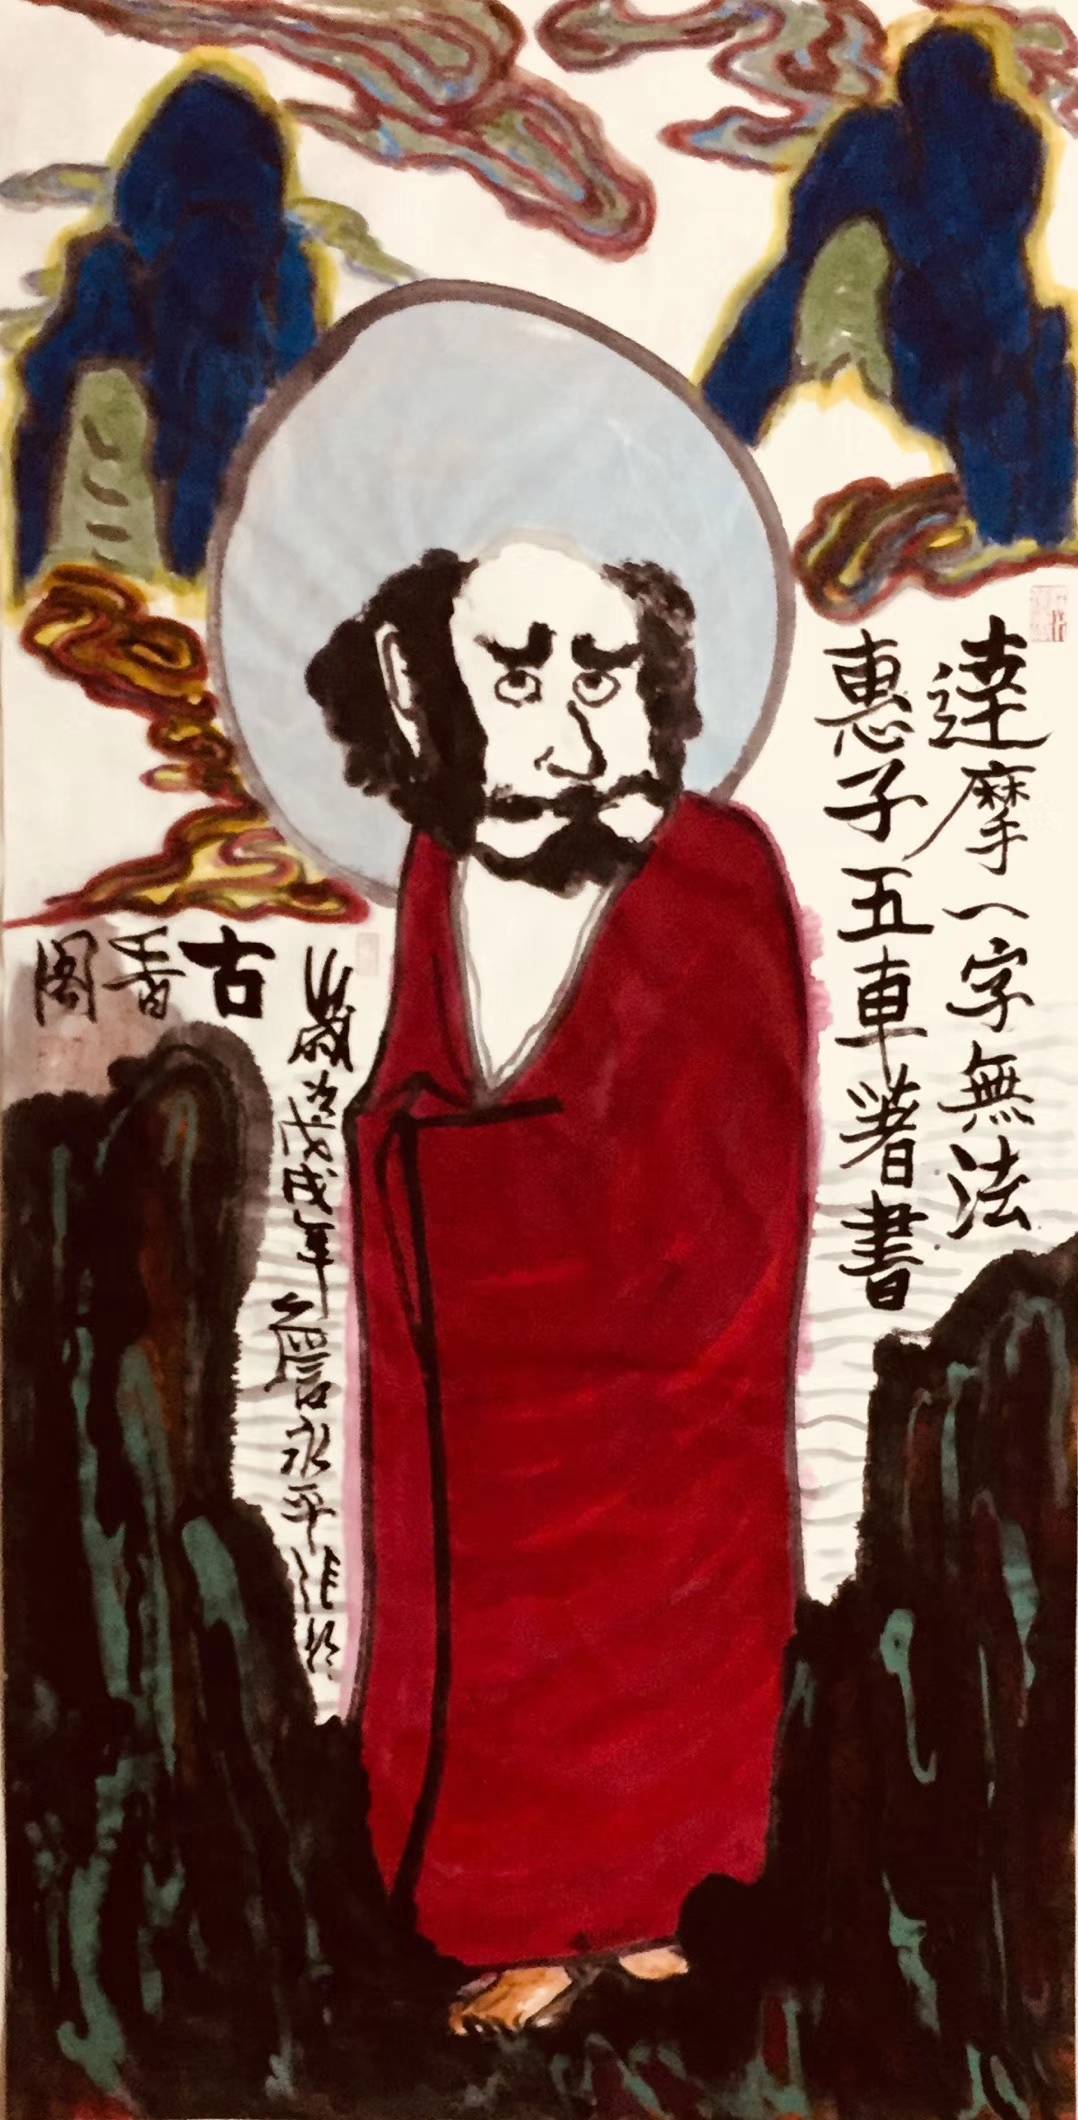 達摩一字無法
惠子五車著書
歲次戊戌年 永平作於
古香閣